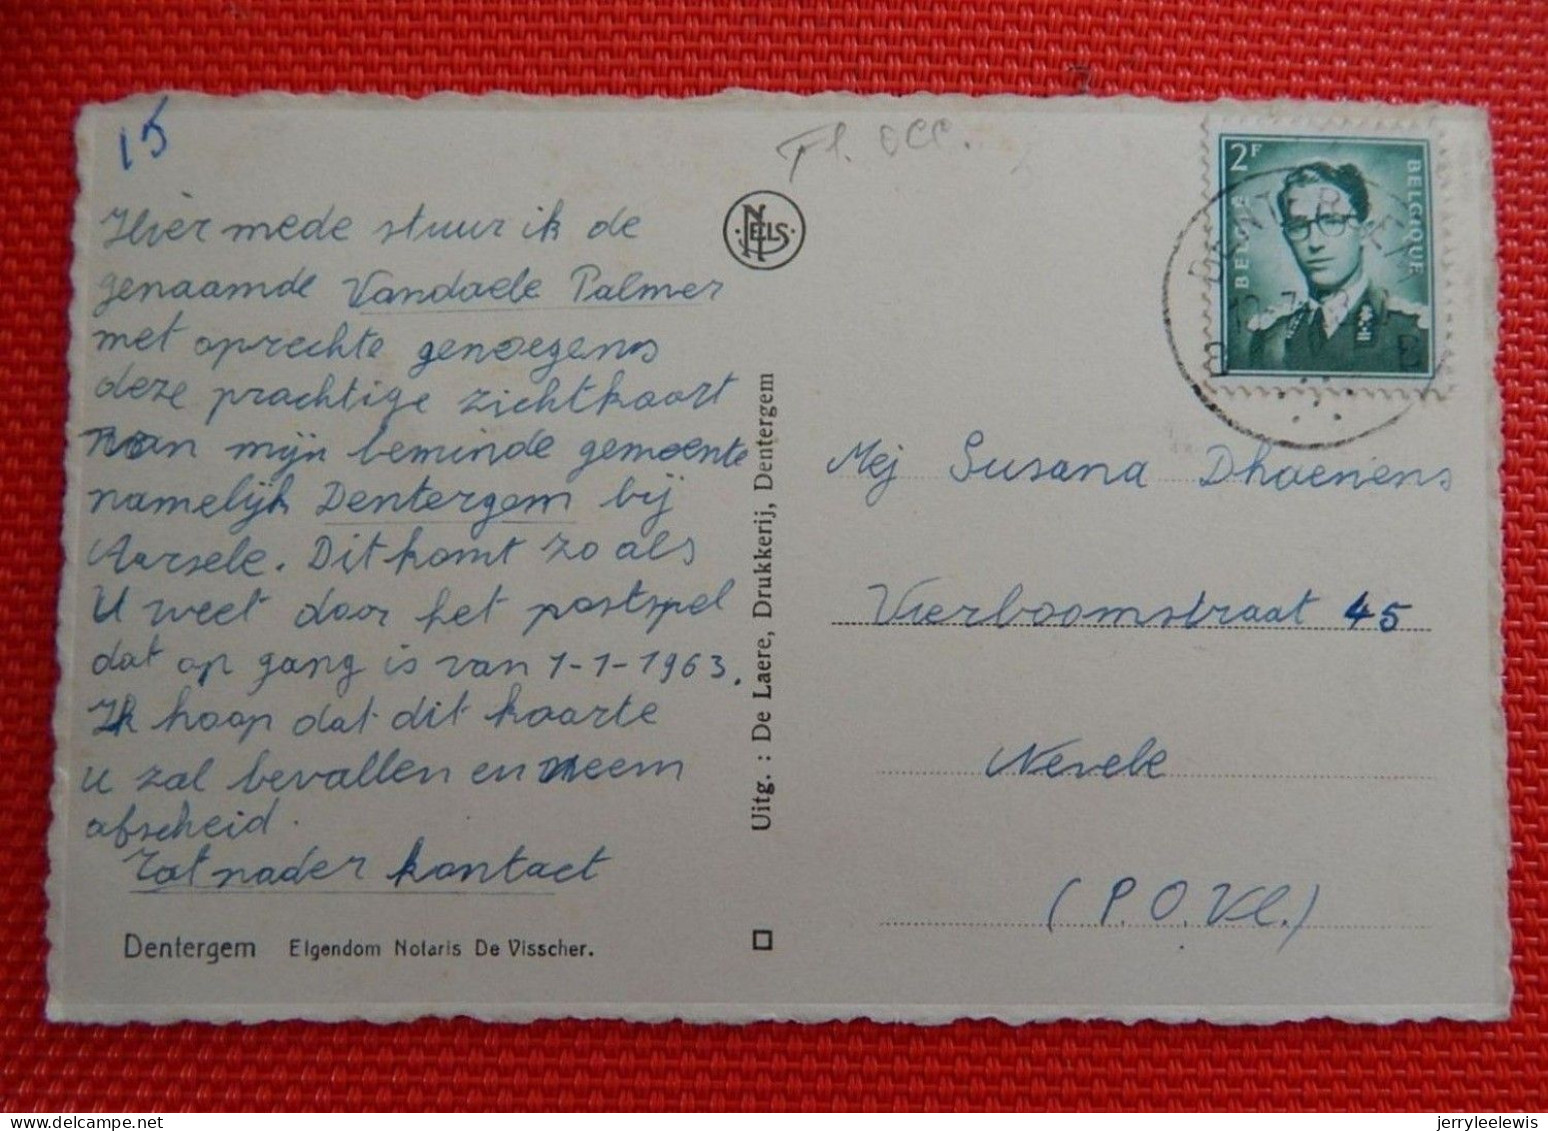 15
Fl. occ.
Hiermede stuur ik de
genaamde Vandaele Palmer
met oprechte genoegens
deze prachtige zichtkaart
van mijn beminde gemeente
namelijk Dentergem bij
Aarsele. Dit komt zo als
U weet door het postspel
dat op gang is van 1-1-1963.
Ik hoop dat dit kaarte
u zal bevallen en neem
afscheid.
Tot nader kontact
Dentergem Eigendom Notaris De Visscher.
NELS
Uitg. : De Laere, Drukkerij, Dentergem
2F
BELGIE
BELGIQUE
DENTERGEM
Mej Susana Dhaenens
Vierboomstraat 45
Nevele
(P.O.Vl.)
jerryleelewis